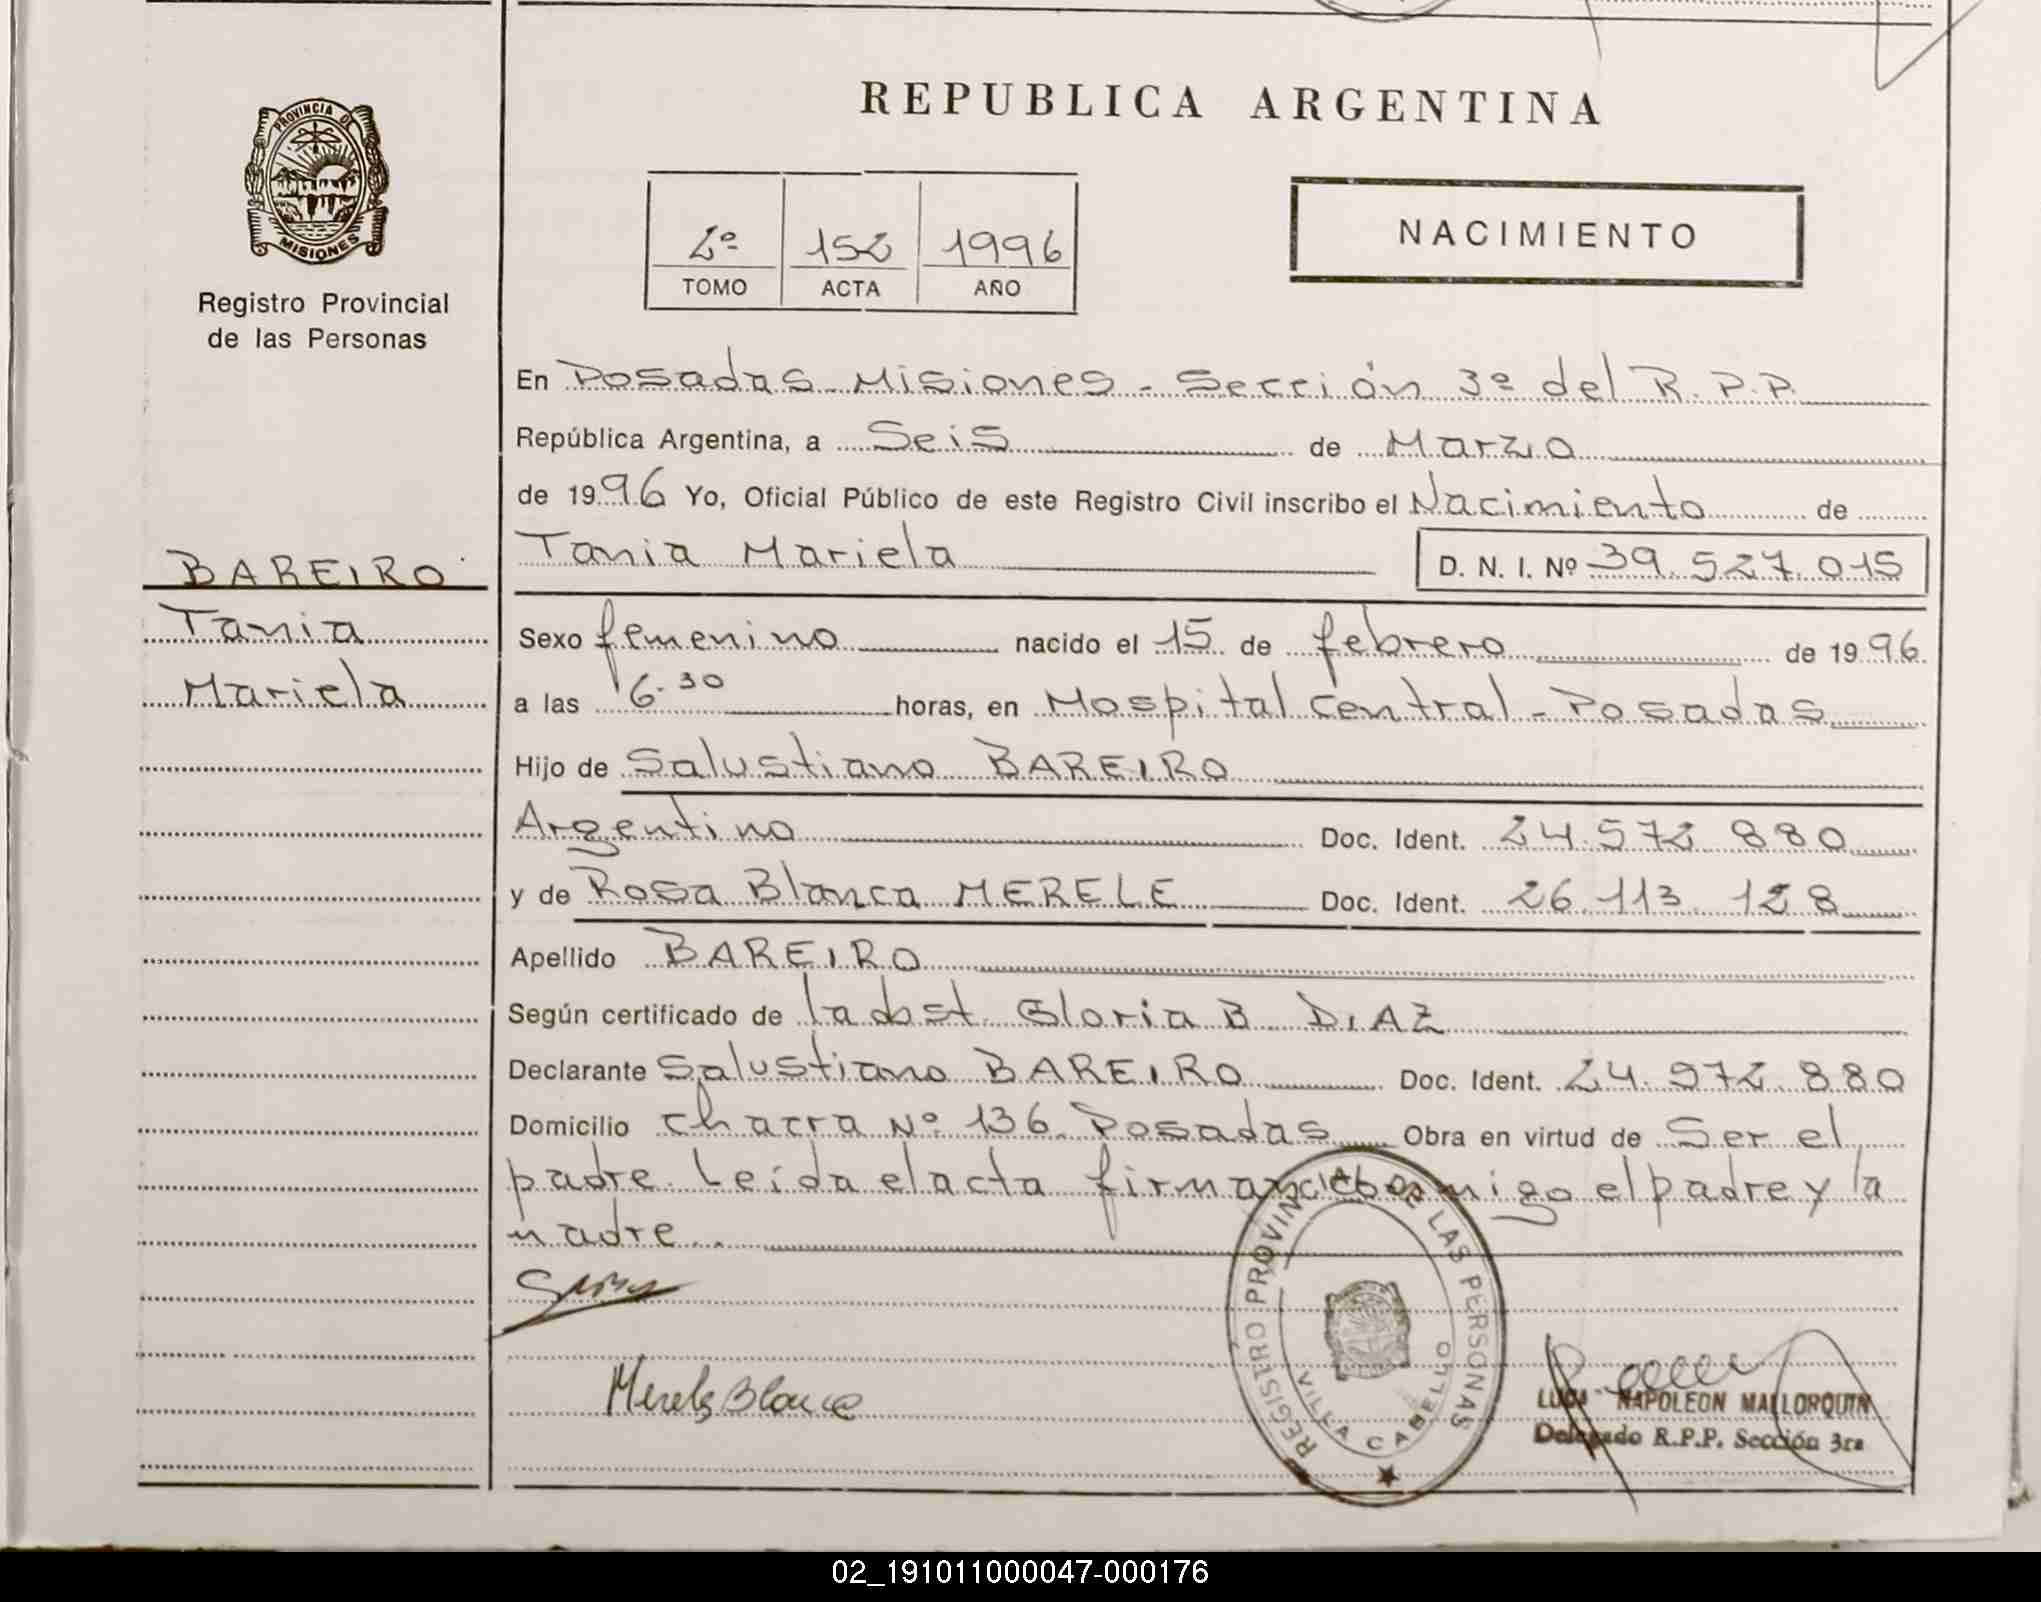 REPUBLICA ARGENTINA
PROVINCIA DE
MISIONES
Registro Provincial
de las Personas
2º 152 1996
TOMO ACTA AÑO
NACIMIENTO
En Posadas Misiones - Sección 3º del R.P.P.
República Argentina, a Seis de Marzo
de 1996 Yo, Oficial Público de este Registro Civil inscribo el Nacimiento de
Tania Mariela D. N. I. Nº 39.527.015
BAREIRO
Tania
Mariela
Sexo femenino nacido el 15 de febrero de 1996
a las 6.30 horas, en Hospital Central - Posadas
Hijo de Salustiano BAREIRO
Argentino Doc. Ident. 24.572.880
y de Rosa Blanca MERELE Doc. Ident. 26.113.128
Apellido BAREIRO
Según certificado de la obst. Gloria B. DIAZ
Declarante Salustiano BAREIRO Doc. Ident. 24.972.880
Domicilio Chacra Nº 136 Posadas Obra en virtud de Ser el
padre. Leída el acta firman conmigo el padre y la
madre..
Merele Blanca
REGISTRO PROVINCIAL DE LAS PERSONAS
VILLA CABELLO
NAPOLEON MALLORQUIN
Delegado R.P.P. Sección 3ra
02_191011000047-000176